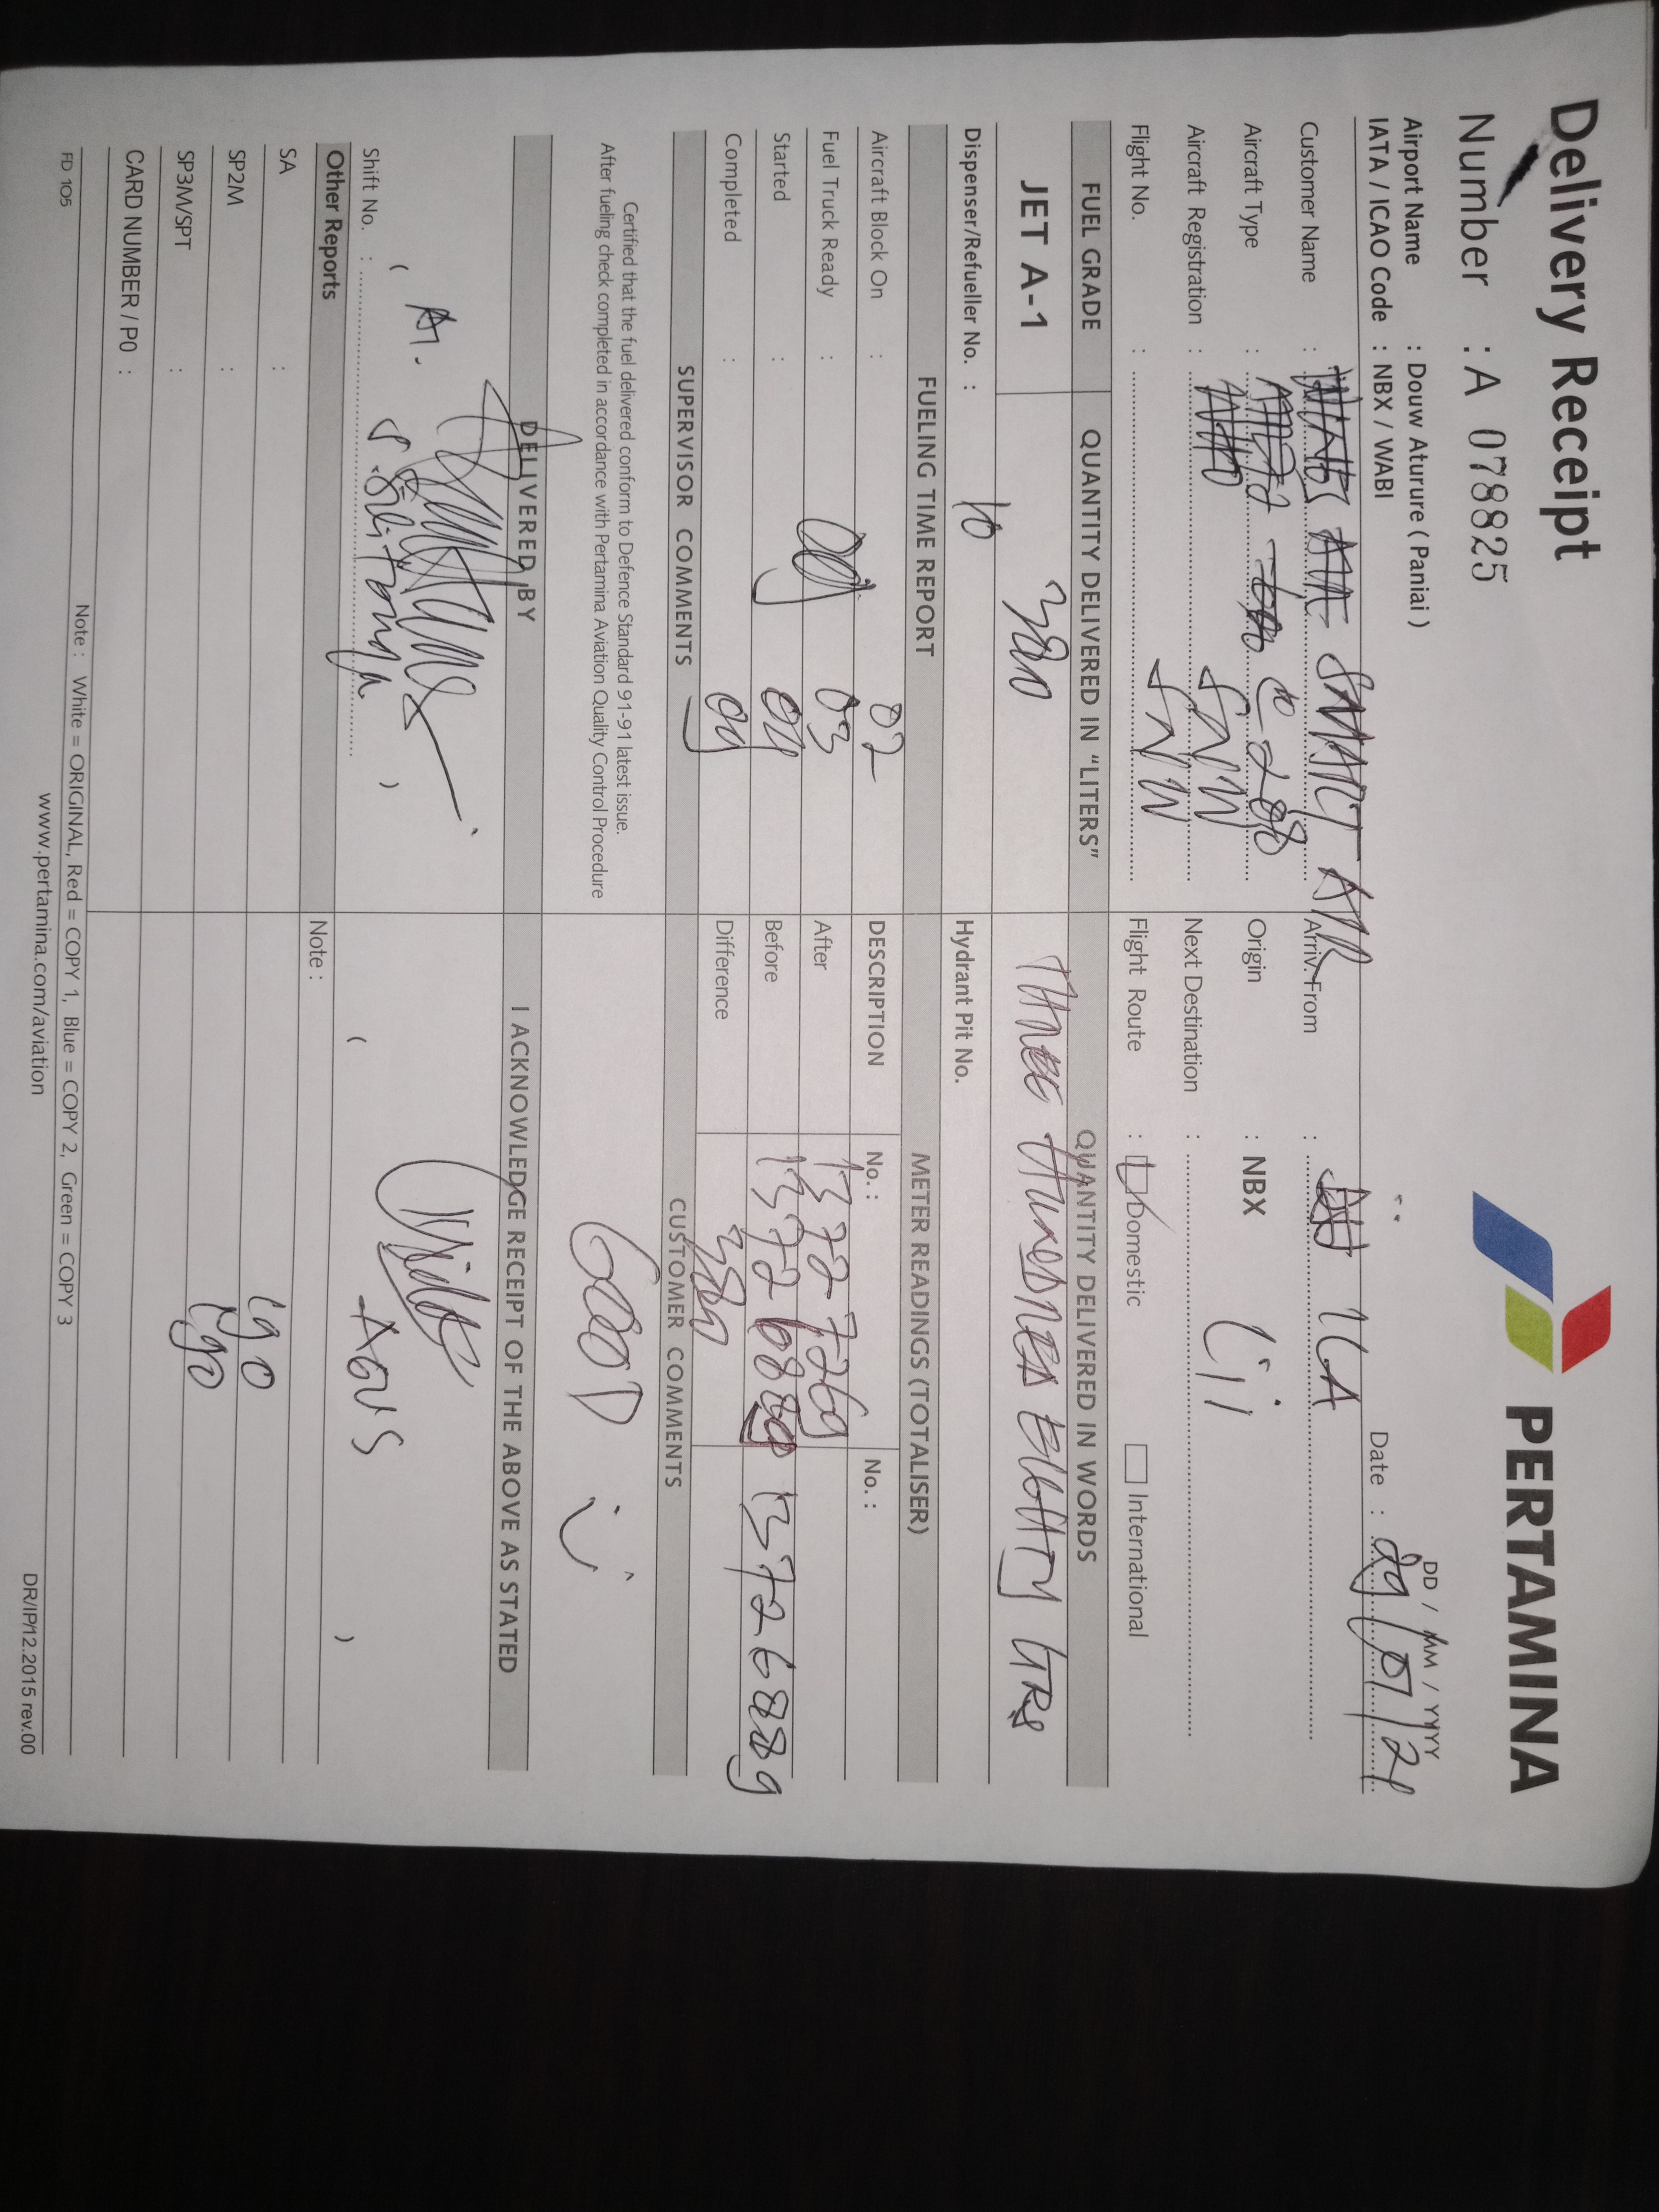 Delivery Receipt
PERTAMINA
Number : A 078825
DD / MM / YYYY
Airport Name : Douw Aturure ( Paniai )
IATA / ICAO Code : NBX / WABI
Date : 29/01/21
Customer Name : SMART AIR
Arriv. From : ILA
Aircraft Type : C 208
Origin : NBX
Aircraft Registration : SNW
Next Destination :
Flight No. : SNW
Flight Route : Domestic International
FUEL GRADE
QUANTITY DELIVERED IN "LITERS"
QUANTITY DELIVERED IN WORDS
JET A-1
380
THREE HUNDRED EIGHTY LTRS
Dispenser/Refueller No. : 10
Hydrant Pit No.
FUELING TIME REPORT
METER READINGS (TOTALISER)
Aircraft Block On : 02
DESCRIPTION
No. :
No. :
Fuel Truck Ready : 03
After 13727269
Started : 04
Before 13726889
Completed : 09
Difference 380
SUPERVISOR COMMENTS
CUSTOMER COMMENTS
Certified that the fuel delivered conform to Defence Standard 91-91 latest issue.
After fueling check completed in accordance with Pertamina Aviation Quality Control Procedure
GOOD
DELIVERED BY
I ACKNOWLEDGE RECEIPT OF THE ABOVE AS STATED
( )
( )
Shift No. :
Other Reports
Note :
SA :
SP2M :
SP3M/SPT :
CARD NUMBER / P0 :
Note : White = ORIGINAL, Red = COPY 1, Blue = COPY 2, Green = COPY 3
FD 105
www.pertamina.com/aviation
DR/IP/12.2015 rev.00